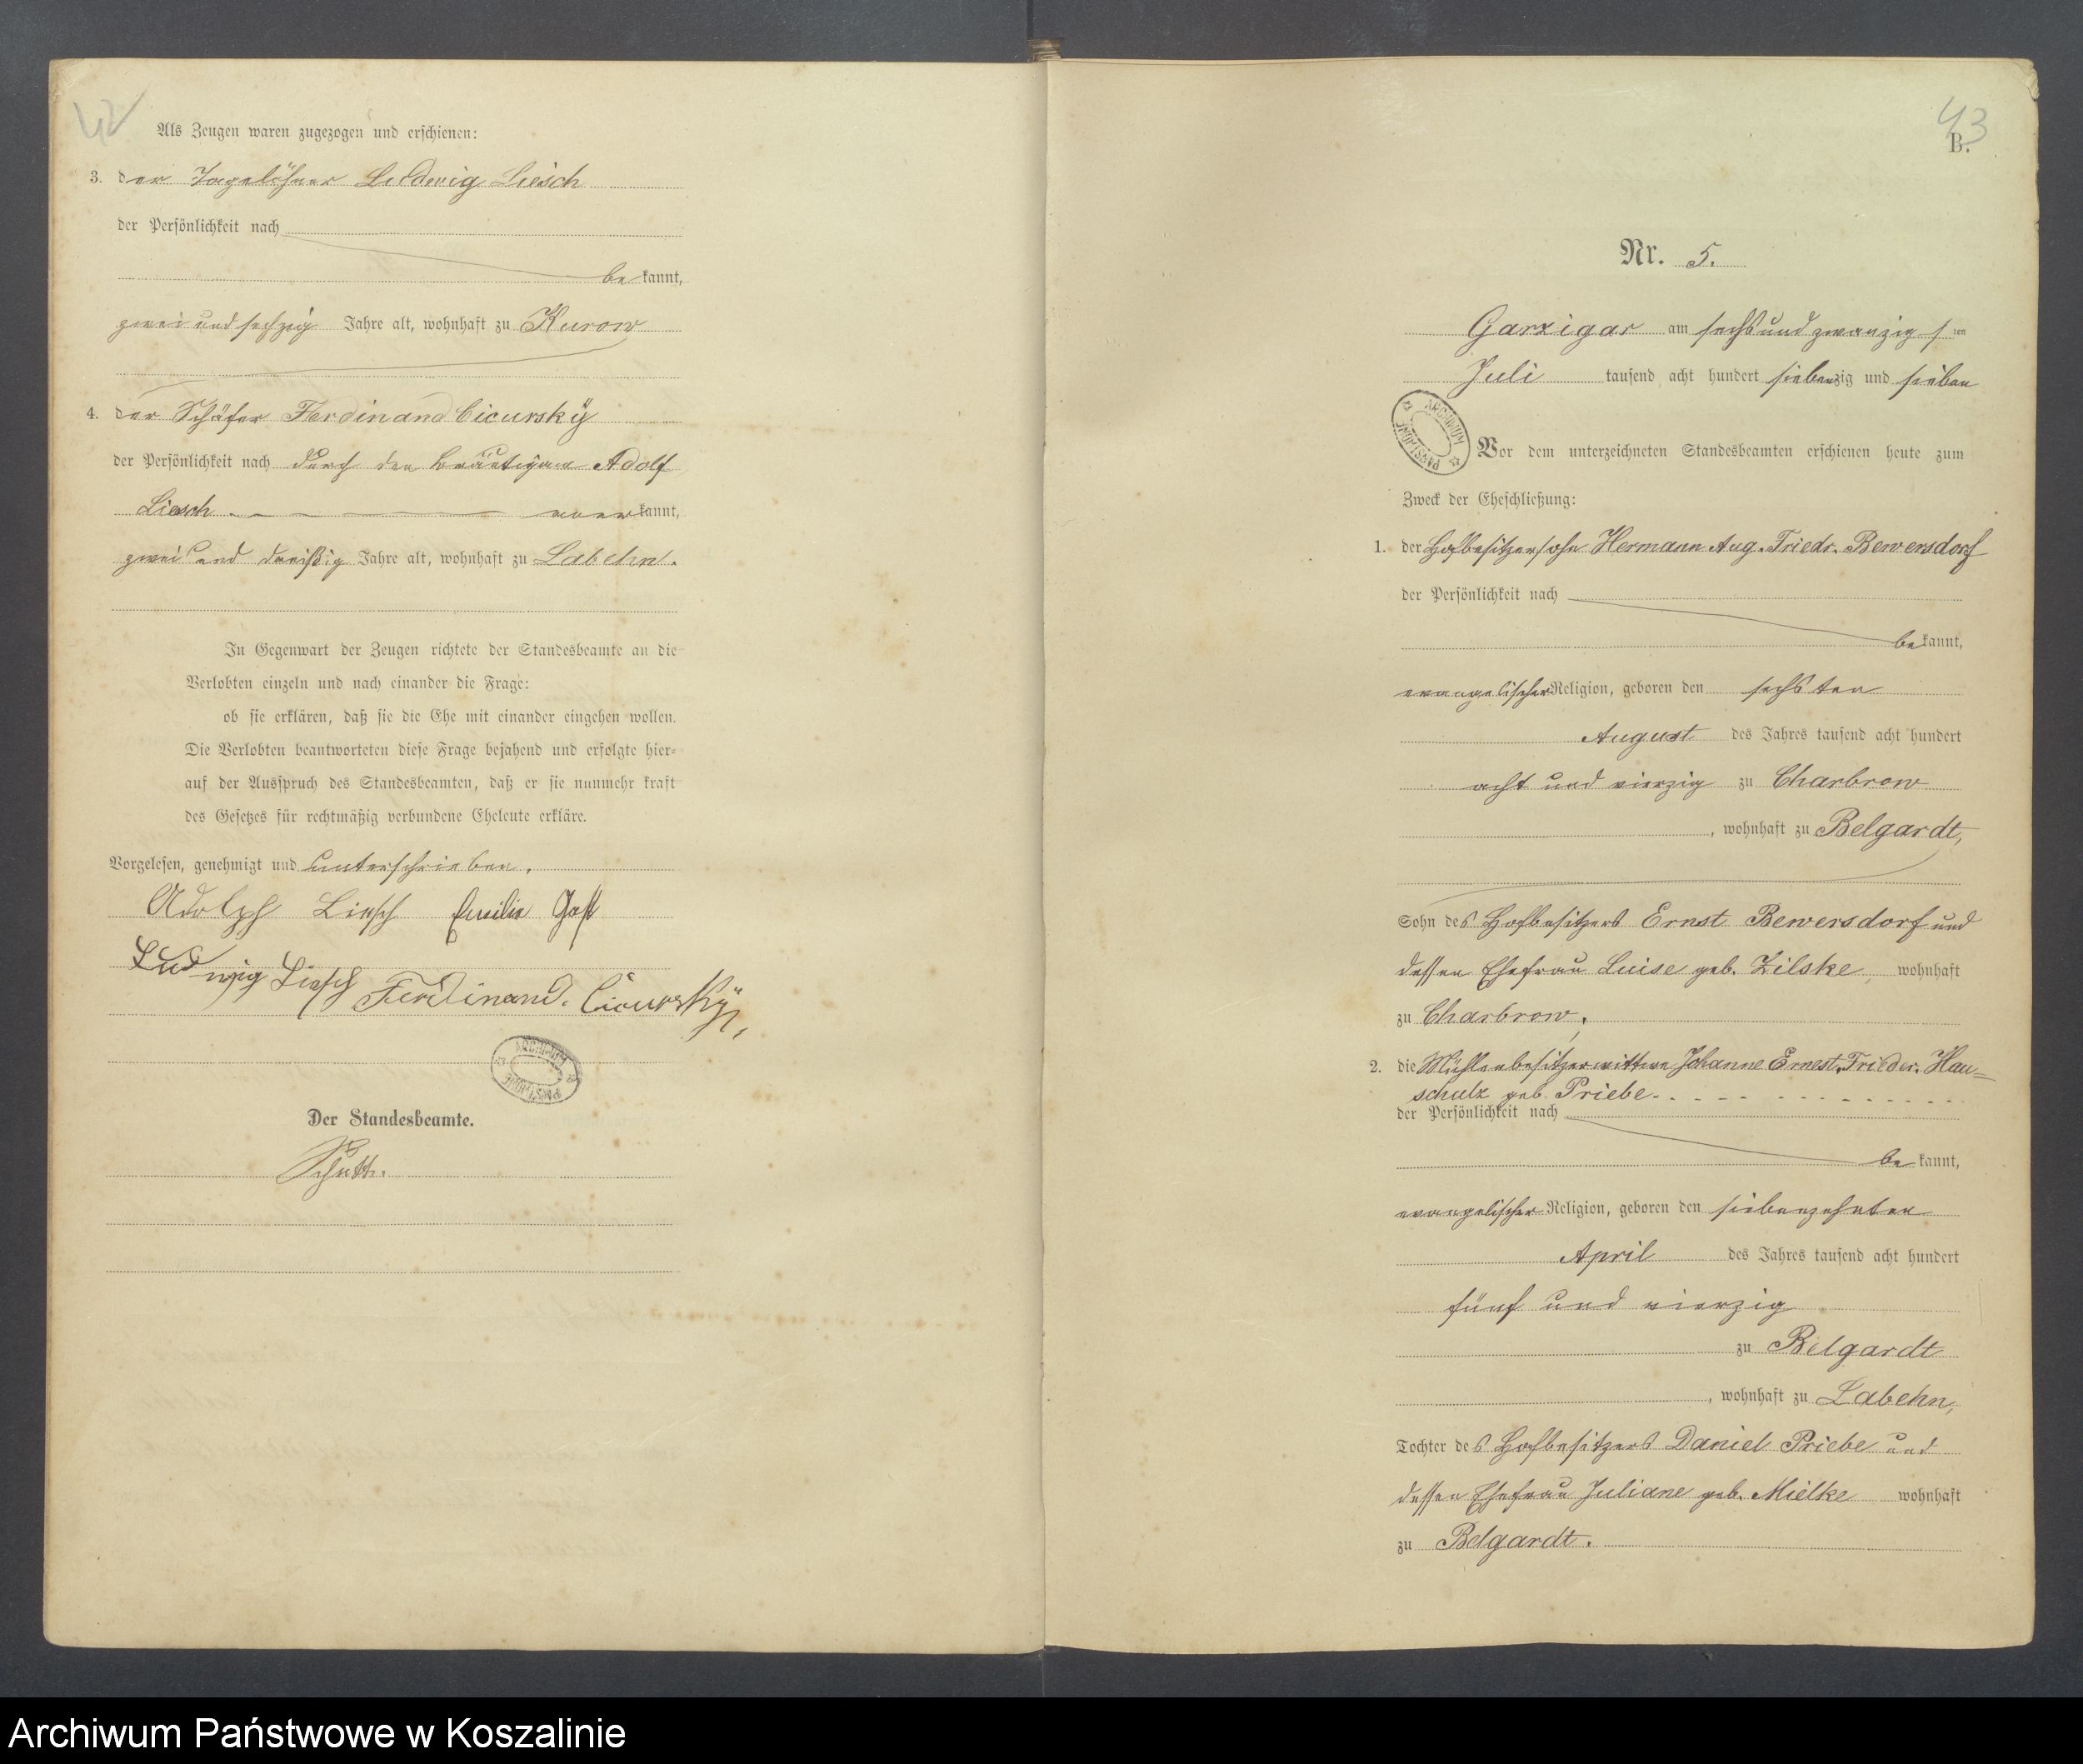 42
Als Zeugen waren zugezogen und erschienen:
3. der Tagelöhner Ludwig Liesch
der Persönlichkeit nach
be kannt,
zwei und sechzig Jahre alt, wohnhaft zu Kurow
4. der Schäfer Ferdinand Cicursky
der Persönlichkeit nach durch den Bräutigam Adolf
Liesch kannt,
zwei und dreißig Jahre alt, wohnhaft zu Labehn.
In Gegenwart der Zeugen richtete der Standesbeamte an die
Verlobten einzeln und nach einander die Frage:
ob sie erklären, daß sie die Ehe mit einander eingehen wollen.
Die Verlobten beantworteten diese Frage bejahend und erfolgte hier-
auf der Ausspruch des Standesbeamten, daß er sie nunmehr kraft
des Gesetzes für rechtmäßig verbundene Eheleute erkläre.
Vorgelesen, genehmigt und unterschrieben.
Adolph Liesch Emilie
Ludwig Liesch Ferdinand. Cicursky
ARCHIWUM PAŃSTWOWE
Der Standesbeamte.
43
B.
Nr. 5.
Garzigar am sechs und zwanzigsten
Juli tausend acht hundert siebenzig und sieben
ARCHIWUM PAŃSTWOWE
Vor dem unterzeichneten Standesbeamten erschienen heute zum
Zweck der Eheschließung:
1. der Hofbesitzersohn Hermann Aug. Friedr. Bewersdorf
der Persönlichkeit nach
be kannt,
evangelischer Religion, geboren den sechsten
August des Jahres tausend acht hundert
acht und vierzig zu Charbrow
, wohnhaft zu Belgardt,
Sohn des Hofbesitzers Ernst Bewersdorf und
dessen Ehefrau Luise geb. Zilske, wohnhaft
zu Charbrow,
2. die Mühlenbesitzerwittwe Johanne Ernest. Frieder. Hau=
schulz geb. Priebe
der Persönlichkeit nach
be kannt,
evangelischer Religion, geboren den siebenzehnten
April des Jahres tausend acht hundert
fünf und vierzig
zu Belgardt
, wohnhaft zu Labehn,
Tochter des Hofbesitzers Daniel Priebe und
dessen Ehefrau Juliane geb. Mielke wohnhaft
zu Belgardt.
Archiwum Państwowe w Koszalinie